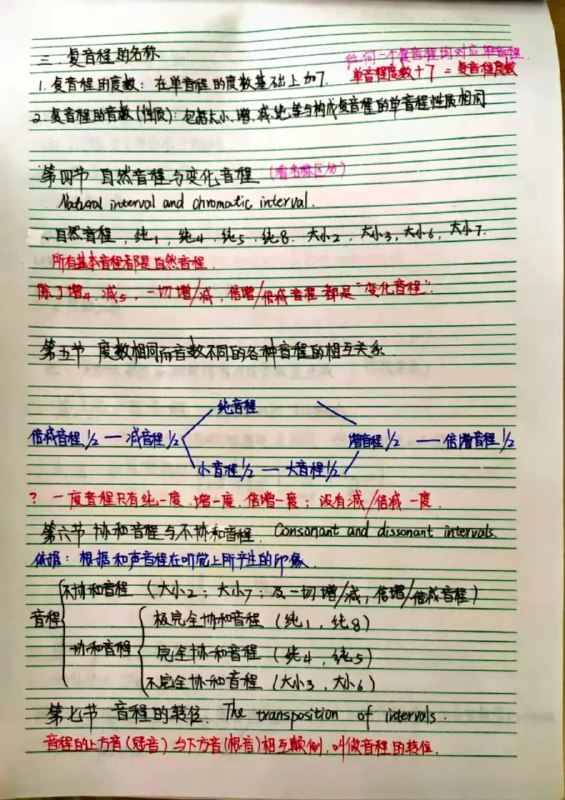 三 复音程的名称
任何一个复音程均对应单音程.
1. 复音程的度数：在单音程的度数基础上加7.
单音程度数+7 = 复音程度数
2. 复音程的音数(性质)：包括大小、增、减、纯等与构成复音程的单音程性质相同
第四节 自然音程与变化音程 (看名称区分)
Natural interval and chromatic interval.
、自然音程，纯1，纯4，纯5，纯8. 大小2，大小3，大小6，大小7.
所有基本音程都是自然音程.
除了增4.减5，一切增/减，倍增/倍减音程 都是“变化音程”.
第五节 度数相同而音数不同的各种音程的相互关系
纯音程
倍减音程1/2 — 减音程1/2 增音程1/2 — 倍增音程1/2
小音程1/2 — 大音程1/2
? 一度音程只有纯一度.增一度.倍增一度；没有减/倍减一度.
第六节 协和音程与不协和音程. Consonant and dissonant intervals.
依据：根据和声音程在听觉上所产生的印象.
不协和音程 (大小2；大小7；及一切增/减，倍增/倍减音程)
音程 极完全协和音程 (纯1，纯8)
协和音程 完全协和音程 (纯4，纯5)
不完全协和音程 (大小3，大小6)
第七节 音程的转位. The transposition of intervals.
音程的上方音(冠音)与下方音(根音)相互颠倒，叫做音程的转位.